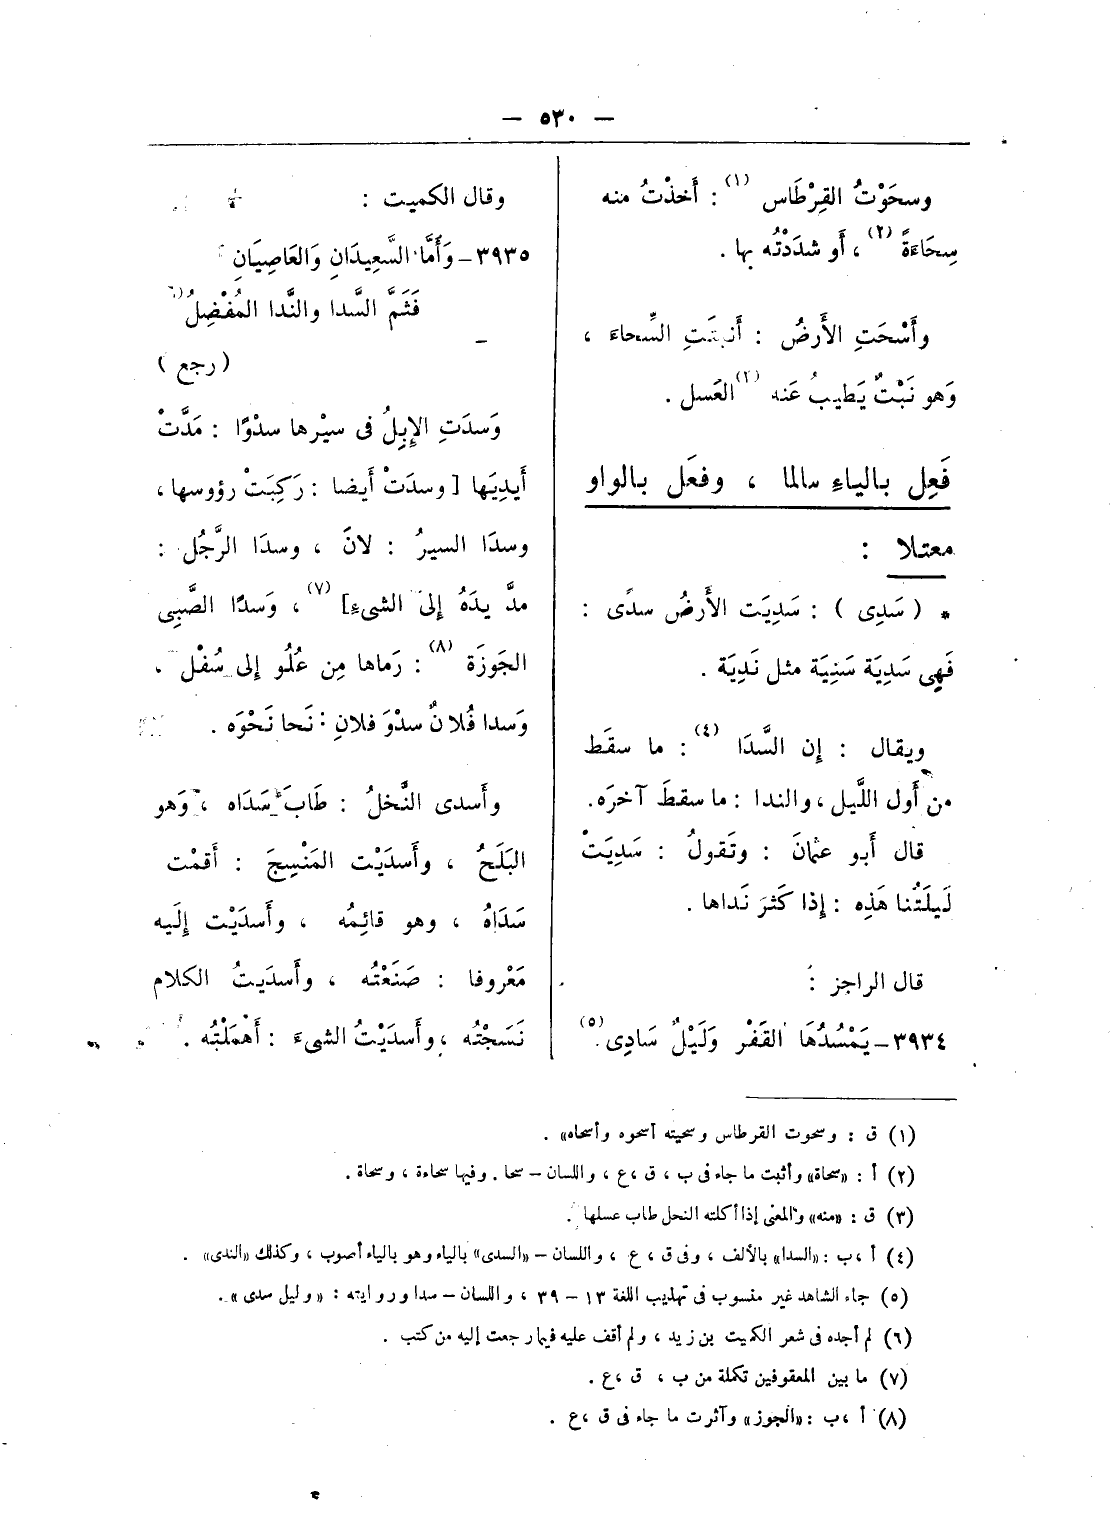 — ٥٣٠ —
وسحَوْتُ القِرْطَاس (١) : أَخذْتُ منه
سِحَاءَةً (٢) ، أَو شدَدْتُه بها .
وأَسْحَتِ الأَرضُ : أَنبتَتِ السِّحاءَ ،
وَهو نَبْتٌ يَطيبُ عَنه (٣) العَسل .
فَعِل بالياءِ سالما ، وفعَل بالواو
معتلا :
* ( سَدِى ) : سَدِيَت الأَرضُ سدًى :
فَهِى سَدِيَة سَنِيَة مثل نَدِيَة .
ويقال : إِن السَّدَا (٤) : ما سقَط
من أَول اللَّيل ، والندا : ما سقطَ آخرَه .
قال أَبو عثمانَ : وتَقولُ : سَدِيَتْ
لَيلَتُنا هَذِه : إِذا كَثرَ نَداها .
قال الراجز :
٣٩٣٤ – يَمْسُدُهَا القَفْر وَلَيْلٌ سَادِى (٥)
وقال الكميت :
٣٩٣٥ – وَأَمَّا السَّعِيدَانِ وَالعَاصِيَانِ
فَثَمَّ السَّدا والنَّدا المُفْضِلُ (٦)
( رجع )
وَسدَتِ الإِبِلُ فى سيْرها سدْوًا : مَدَّتْ
أَيدِيَها [ وسدَتْ أَيضا : رَكِبَتْ رؤوسها ،
وسدَا السيرُ : لانَ ، وسدَا الرَّجُل :
مدَّ يدَهُ إِلىَ الشىءِ] (٧) ، وَسدَا الصَّبِى
الجَوزَة (٨) : رَماها مِن عُلُو إِلى سُفْل .
وَسدا فُلانٌ سدْوَ فلانِ : نَحا نَحْوَه .
وأَسدى النَّخلُ : طَابَ سَدَاه ، وَهو
البَلَحُ ، وأَسدَيْت المَنْسِجَ : أَقمْت
سَدَاهُ ، وهو قائِمُه ، وأَسدَيْت إِلَيه
مَعْروفا : صَنَعْتُه ، وأَسدَيتُ الكلام
نَسَجْتُه ، وأَسدَيْتُ الشىءَ : أَهْمَلْتُه .
(١) ق : وسحوت القرطاس وسحيته أسحوه وأسحاه» .
(٢) أ : «سحاة» وأثبت ما جاء فى ب ، ق ،ع ، واللسان – سحا . وفيها سحاءة ، وسحاة .
(٣) ق : «منه» والمعنى إذا أكلته النحل طاب عسلها .
(٤) أ ،ب : «السدا» بالألف ، وفى ق ، ع ، واللسان – «السدى» بالياء وهو بالياء أصوب ، وكذلك «الندى» .
(٥) جاء الشاهد غير منسوب فى تهذيب اللغة ١٣ – ٣٩ ، واللسان – سدا وروايته : «وليل سدى» .
(٦) لم أجده فى شعر الكميت بن زيد ، ولم أقف عليه فيما رجعت إليه من كتب .
(٧) ما بين المعقوفين تكملة من ب ، ق ،ع .
(٨) أ ،ب : «الجوز» وآثرت ما جاء فى ق ،ع .